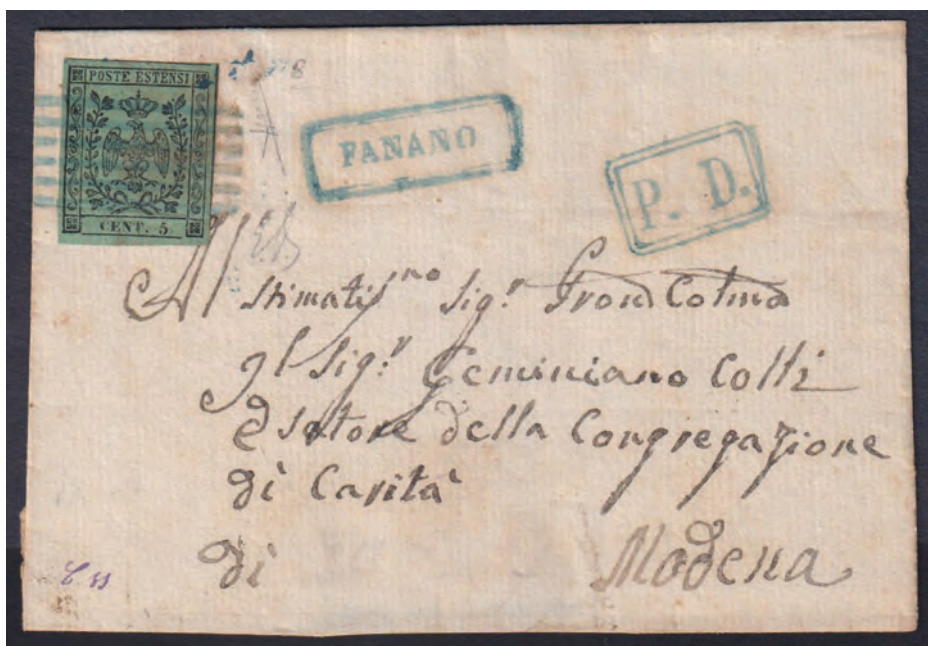 POSTE ESTENSI
CENT. 5
FANANO
P. D.
Al Stimatis.mo Sig.r Pron Colmo
Il Sig.r Geminiano Colli
Esatore della Congregazione
di Carità
di Modena